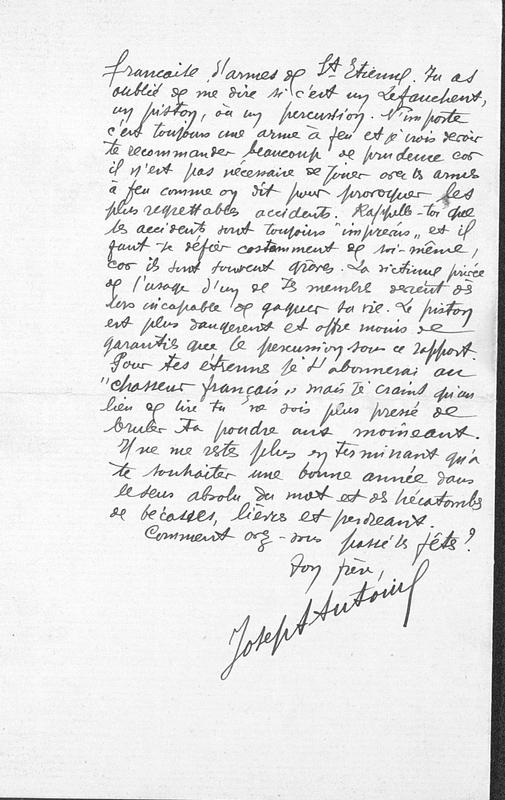 francaise d'armes de St Etienne. Tu as
oublié de me dire si c'est un Lefaucheut,
un piston, ou un percussion. N'importe
c'est toujours une arme à feu et je crois devoir
te recommander beaucoup de prudence car
il n'est pas nécessaire de jouer avec les armes
à feu comme on dit pour provoquer les
plus regrettables accidents. Rappelle-toi que
les accidents sont toujours "imprévus" et il
faut se défier constamment de soi-même,
car ils sont souvent graves. La victime privée
de l'usage d'un de ses membre devient dès
lors incapable de gagner sa vie. Le piston
est plus dangereux et offre moins de
garanties que le percussion sous ce rapport.
Pour tes étrennes je t'abonnerai au
"chasseur français" mais je crains qu'au
lieu de lire tu ne sois plus pressé de
bruler ta poudre aux moineaux.
Il ne me reste plus en terminant qu'à
te souhaiter une bonne année dans
le sens absolu du mot et des hécatombes
de bécasses, lièvres et perdreaux.
Comment avez-vous passé les fêtes?
Ton frère,
Joseph Antoine